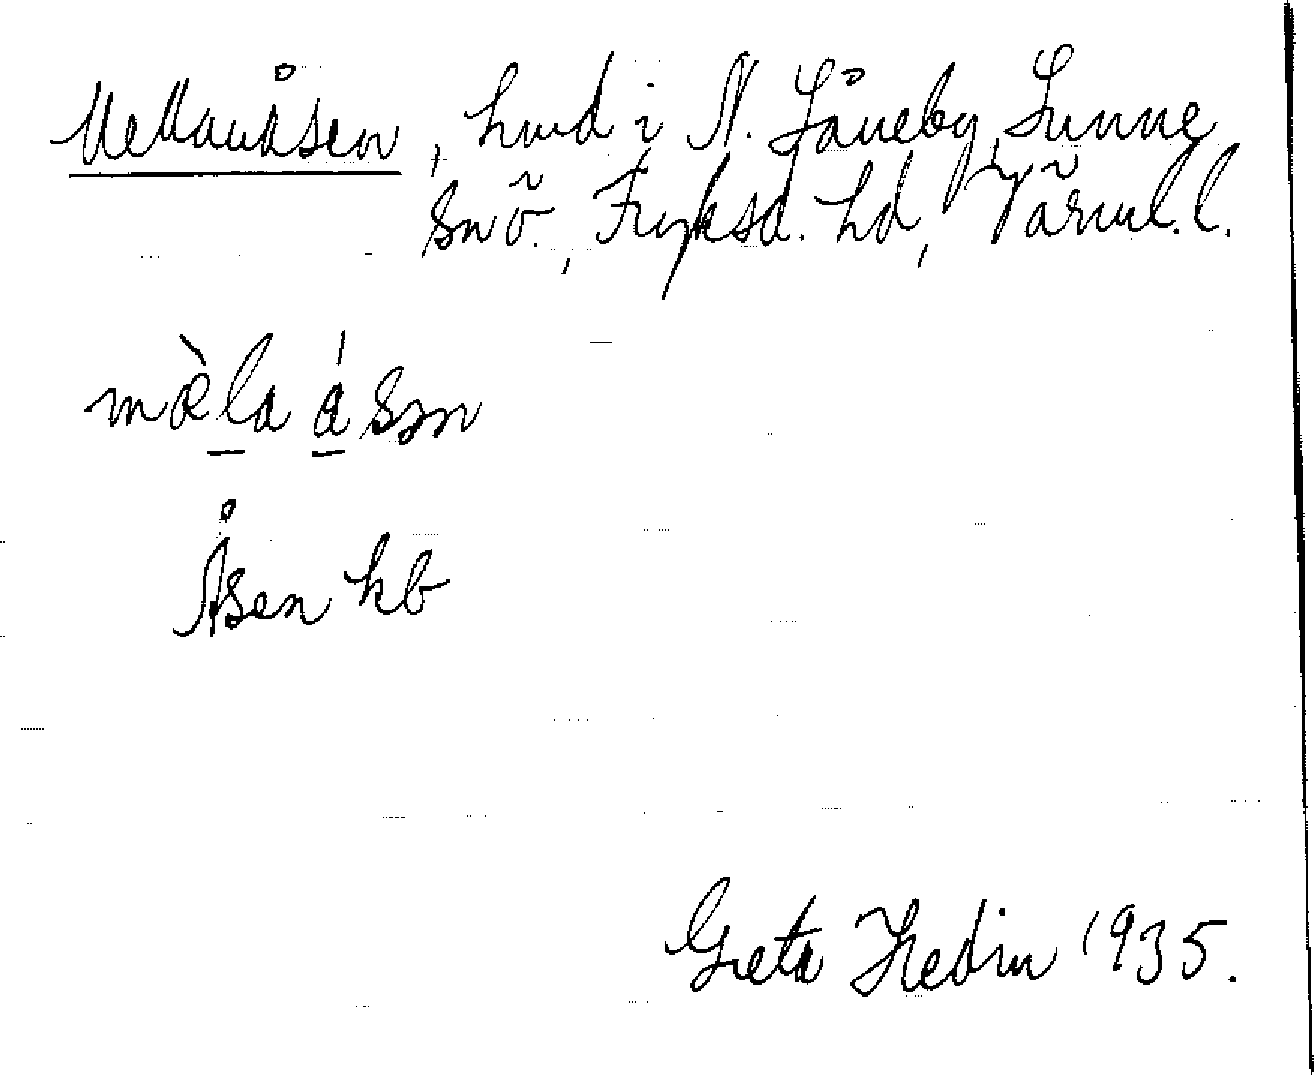 Mellanåsen, hmd i N. Låneby, Sunne
snö., Fryksd. hd, Värml. l.
mæ̀la åsən
Åsen kb
Greta Hedin 1935.